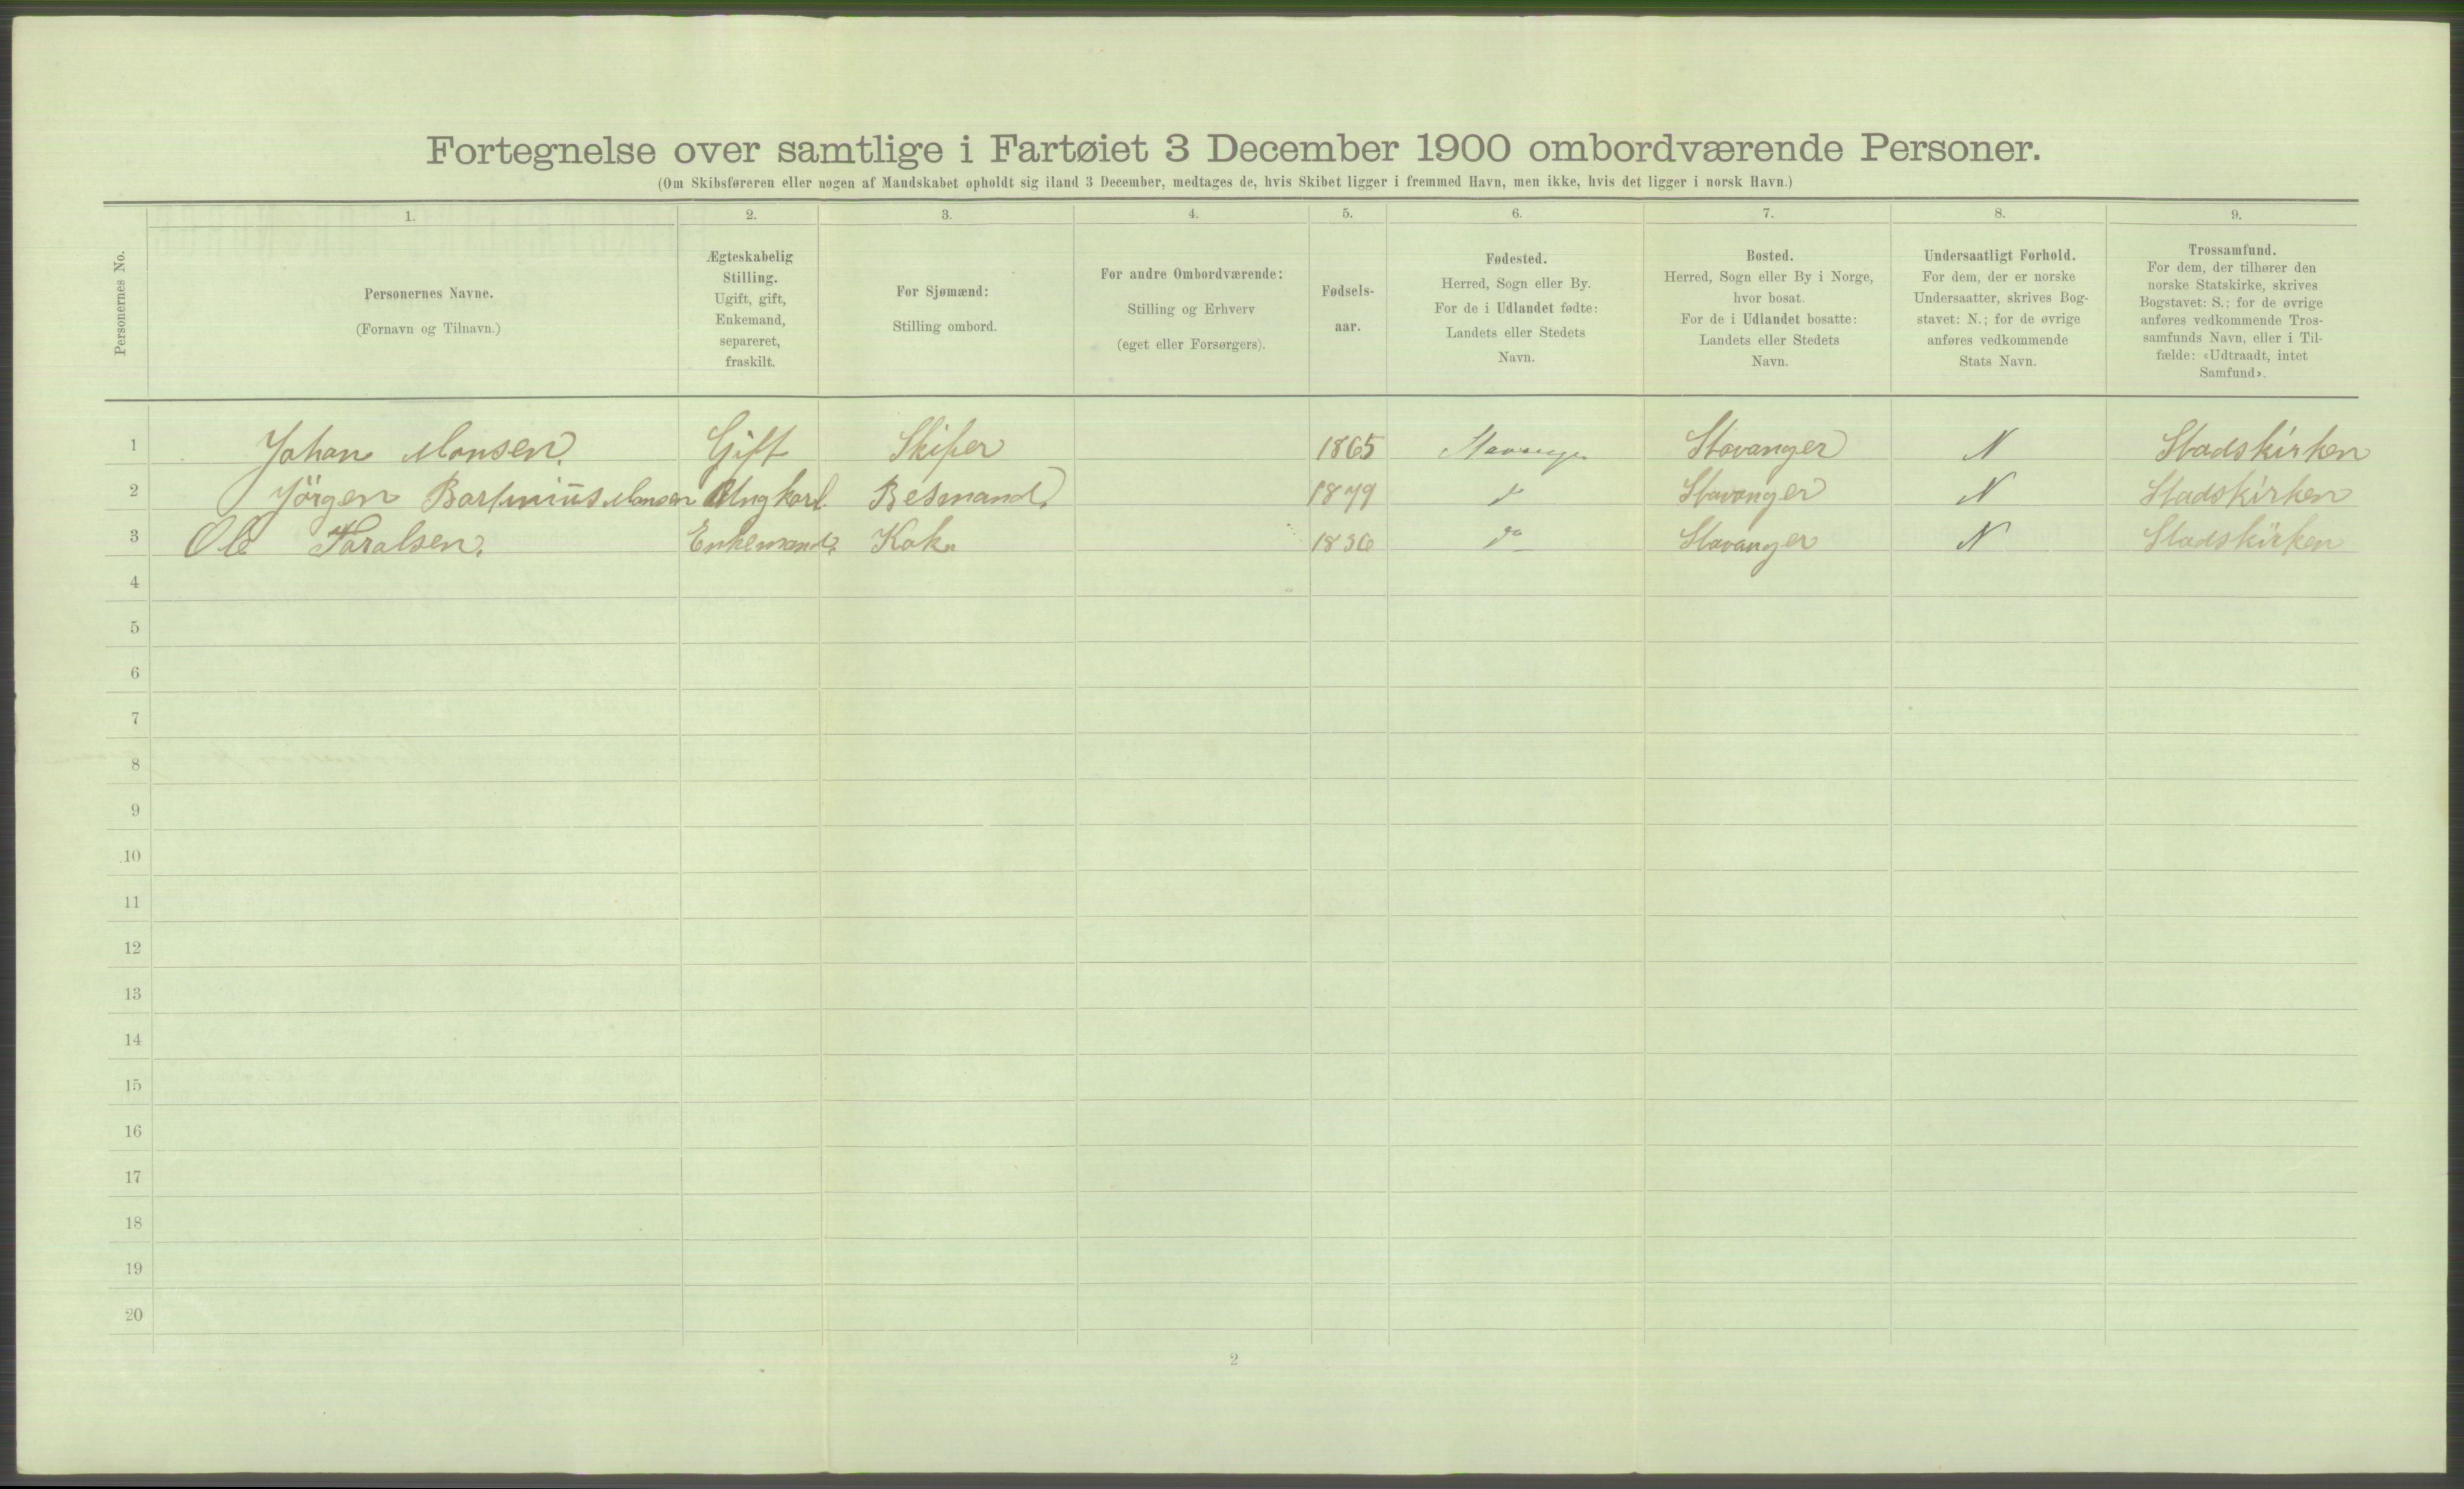 Fortegnelse over samtlige i Fartøiet 3 December 1900 ombordværende Personer.
(Om Skibsføreren eller nogen af Mandskabet opholdt sig iland 3 December, medtages de, hvis Skibet ligger i fremmed Havn, men ikke, hvis det ligger i norsk Havn.)
Personernes No.
1.
Personernes Navne.
(Fornavn og Tilnavn.)
2.
Ægteskabelig
Stilling.
Ugift, gift,
Enkemand,
separeret,
fraskilt.
3.
For Sjømænd:
Stilling ombord.
4.
For andre Ombordværende:
Stilling og Erhverv
(eget eller Forsørgers).
5.
Fødsels-
aar.
6.
Fødested.
Herred, Sogn eller By.
For de i Udlandet fødte:
Landets eller Stedets
Navn.
7.
Bosted.
Herred, Sogn eller By i Norge,
hvor bosat.
For de i Udlandet bosatte:
Landets eller Stedets
Navn.
8.
Undersaatligt Forhold.
For dem, der er norske
Undersaatter, skrives Bog-
stavet: N.; for de øvrige
anføres vedkommende
Stats Navn.
9.
Trossamfund.
For dem, der tilhører den
norske Statskirke, skrives
Bogstavet: S.; for de øvrige
anføres vedkommende Tros-
samfunds Navn, eller i Til-
fælde: «Udtraadt, intet
Samfund».
1 Johan Monsen. Gift Skiper 1865 Stavanger Stavanger N Stadskirken
2 Jörgen Monsen Ungkarl. Besmand. 1879 Stavanger N Stadskirken
3 Ole Enkemand. Kok 1836 do Stavanger N Stadskirken
4
5
6
7
8
9
10
11
12
13
14
15
16
17
18
19
20
2